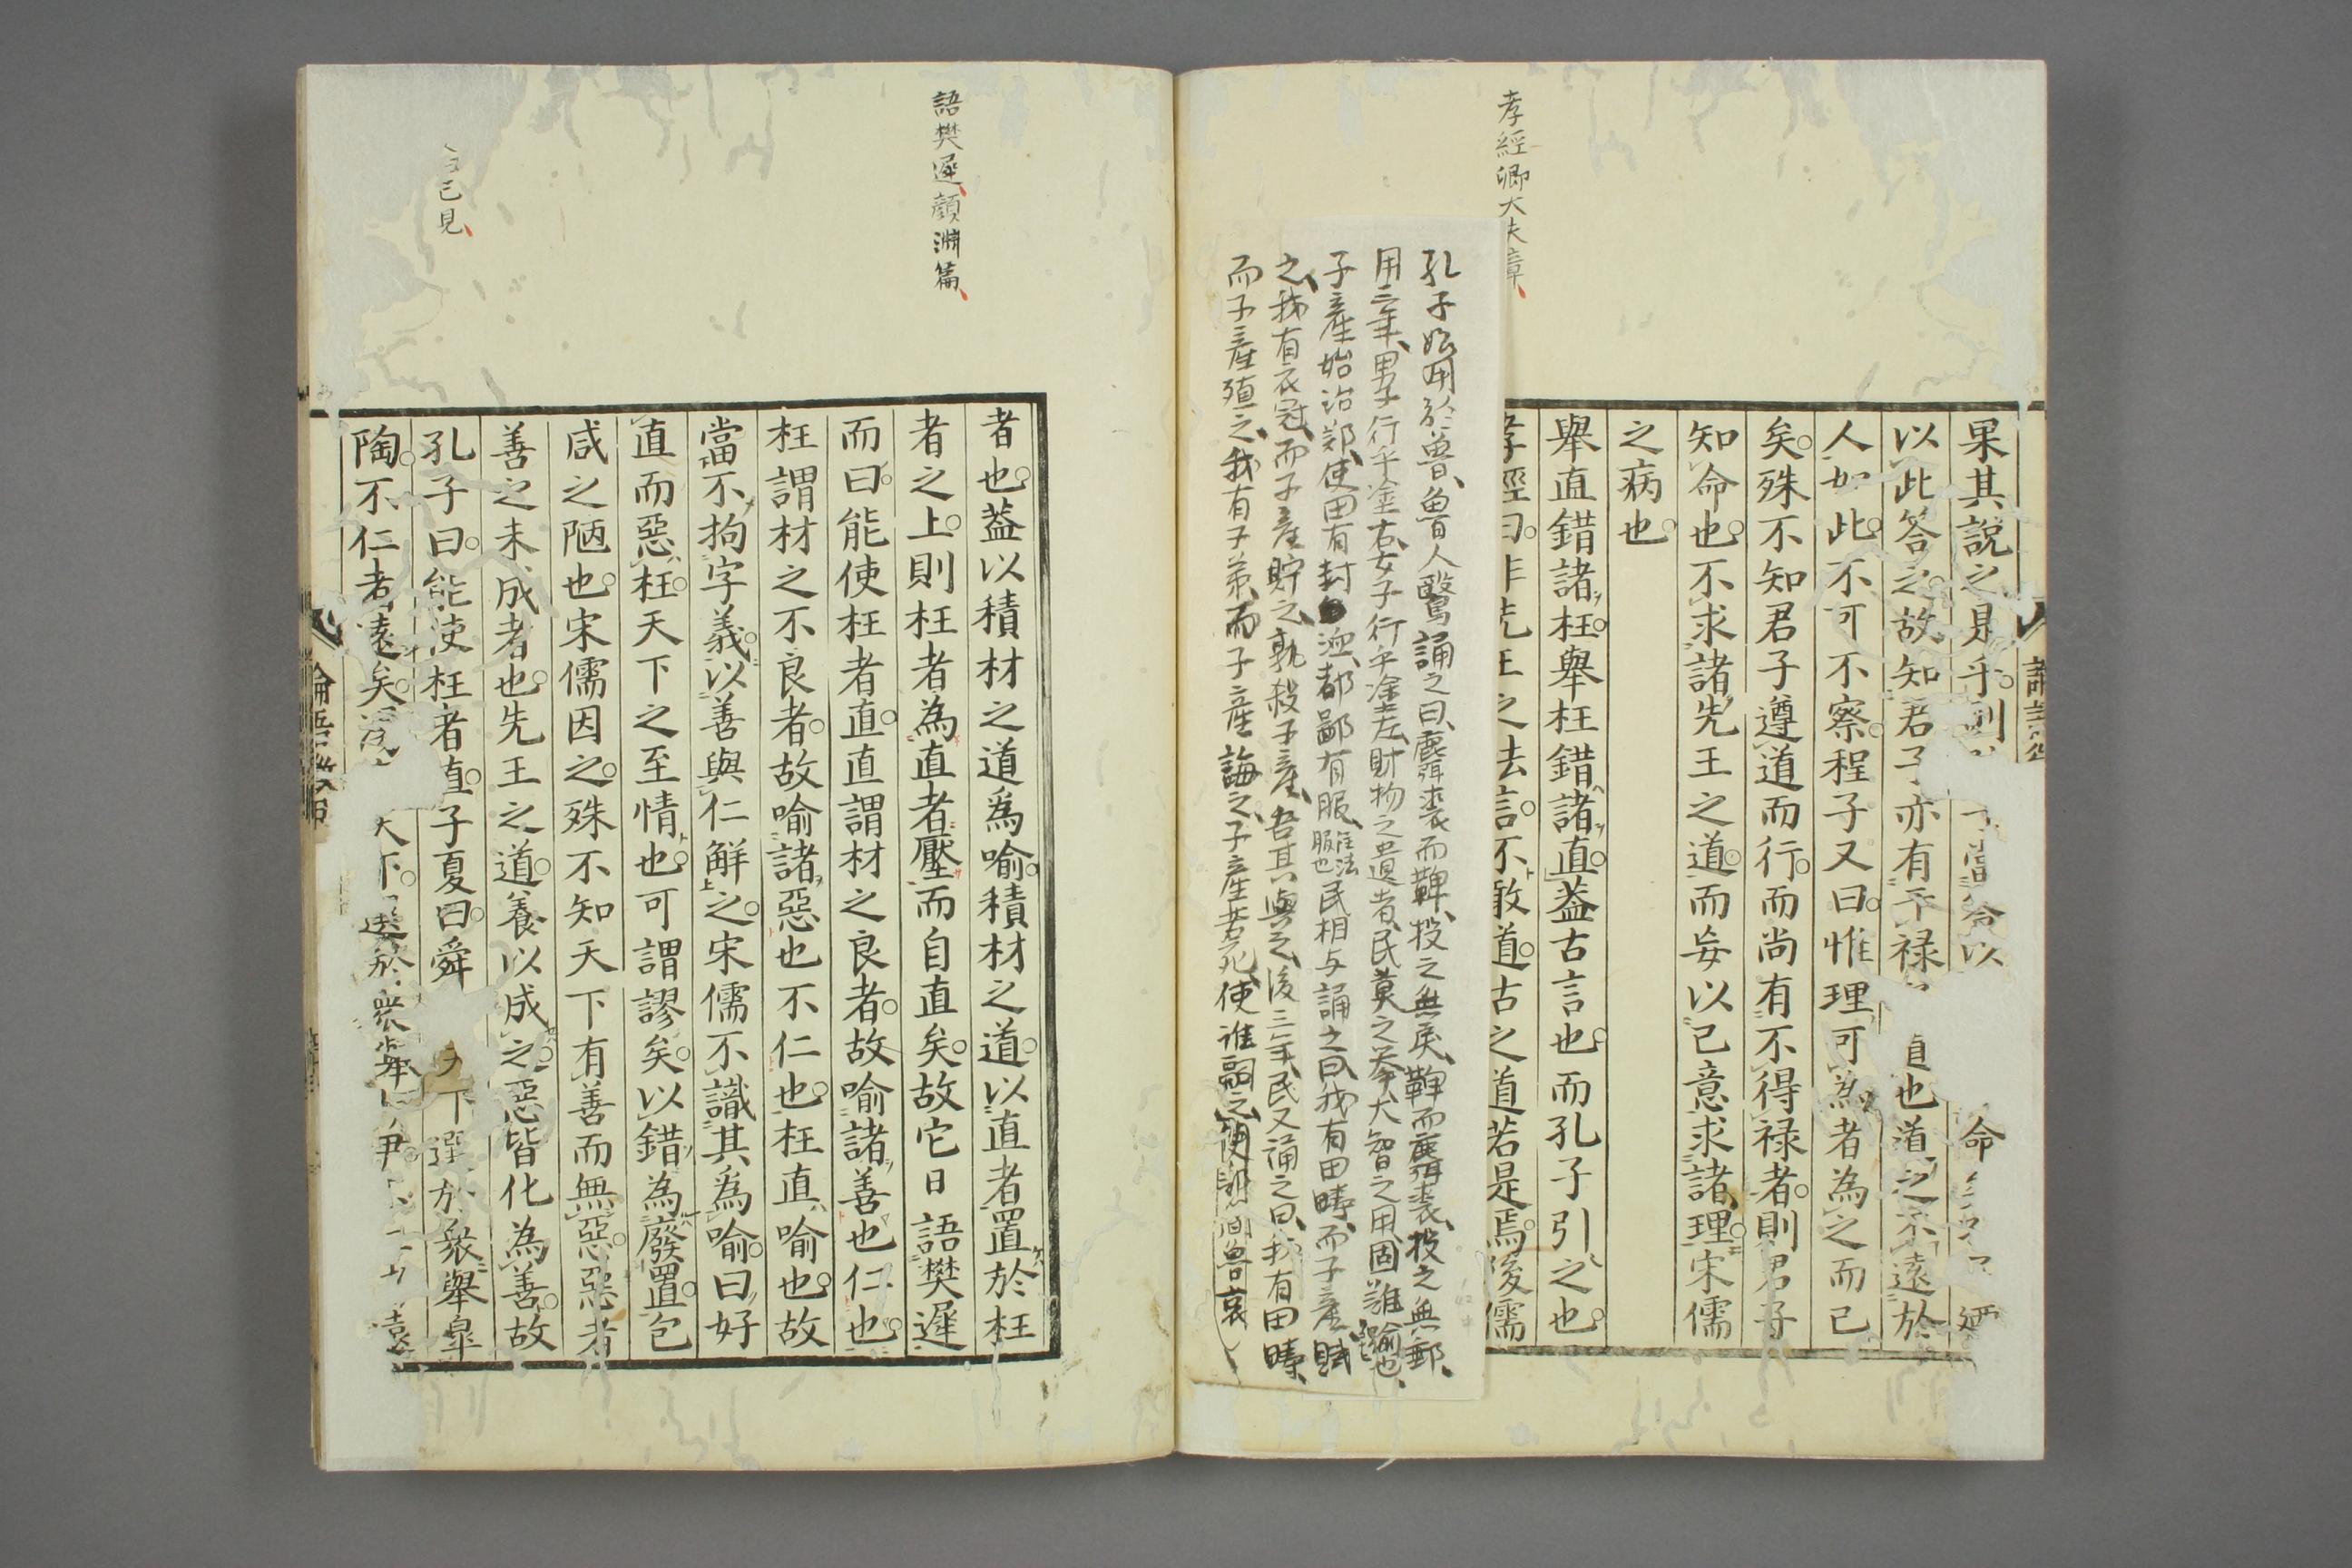 孝經卿大夫章
果其說之是乎則
當答以
命
以此答之故知君子亦有干祿
道也道之不遠於
人如此不可不察程子又曰惟理可為者為之而已
矣殊不知君子遵道而行而尚有不得祿者則君子
知命也不求諸先王之道而妄以己意求諸理宋儒
之病也
舉直錯諸枉舉枉錯諸直蓋古言也而孔子引之也
孝經曰非先王之法言不敢道古之道若是焉後儒
孔子始用於魯魯人鷖誦之曰麛裘而鞞投之無戾鞞而麛裘投之無郵
用三年男子行乎塗右女子行乎塗左財物之遺者民莫之舉大智之用固難喻也
子產始治鄭使田有封洫都鄙有服注法服也民相与誦之曰我有田疇而子產賦
之我有衣冠而子產貯之孰殺子產吾其與之後三年民又誦之曰我有田疇
而子產殖之我有子弟而子產誨之子產若死使誰嗣之
語樊遲顏淵篇
已見
者也蓋以積材之道爲喻積材之道以直者置於枉
者之上則枉者為直者壓而自直矣故它日語樊遲
而曰能使枉者直直謂材之良者故喻諸善也仁也
枉謂材之不良者故喻諸惡也不仁也枉直喻也故
當不拘字義以善與仁解之宋儒不識其為喻曰好
直而惡枉天下之至情也可謂謬矣以錯為廢置包
咸之陋也宋儒因之殊不知天下有善而無惡惡者
善之未成者也先王之道養以成之惡皆化為善故
孔子曰能使枉者直子夏曰舜
下選於眾舉皐
陶不仁者遠矣
天下選於眾舉伊尹
遠